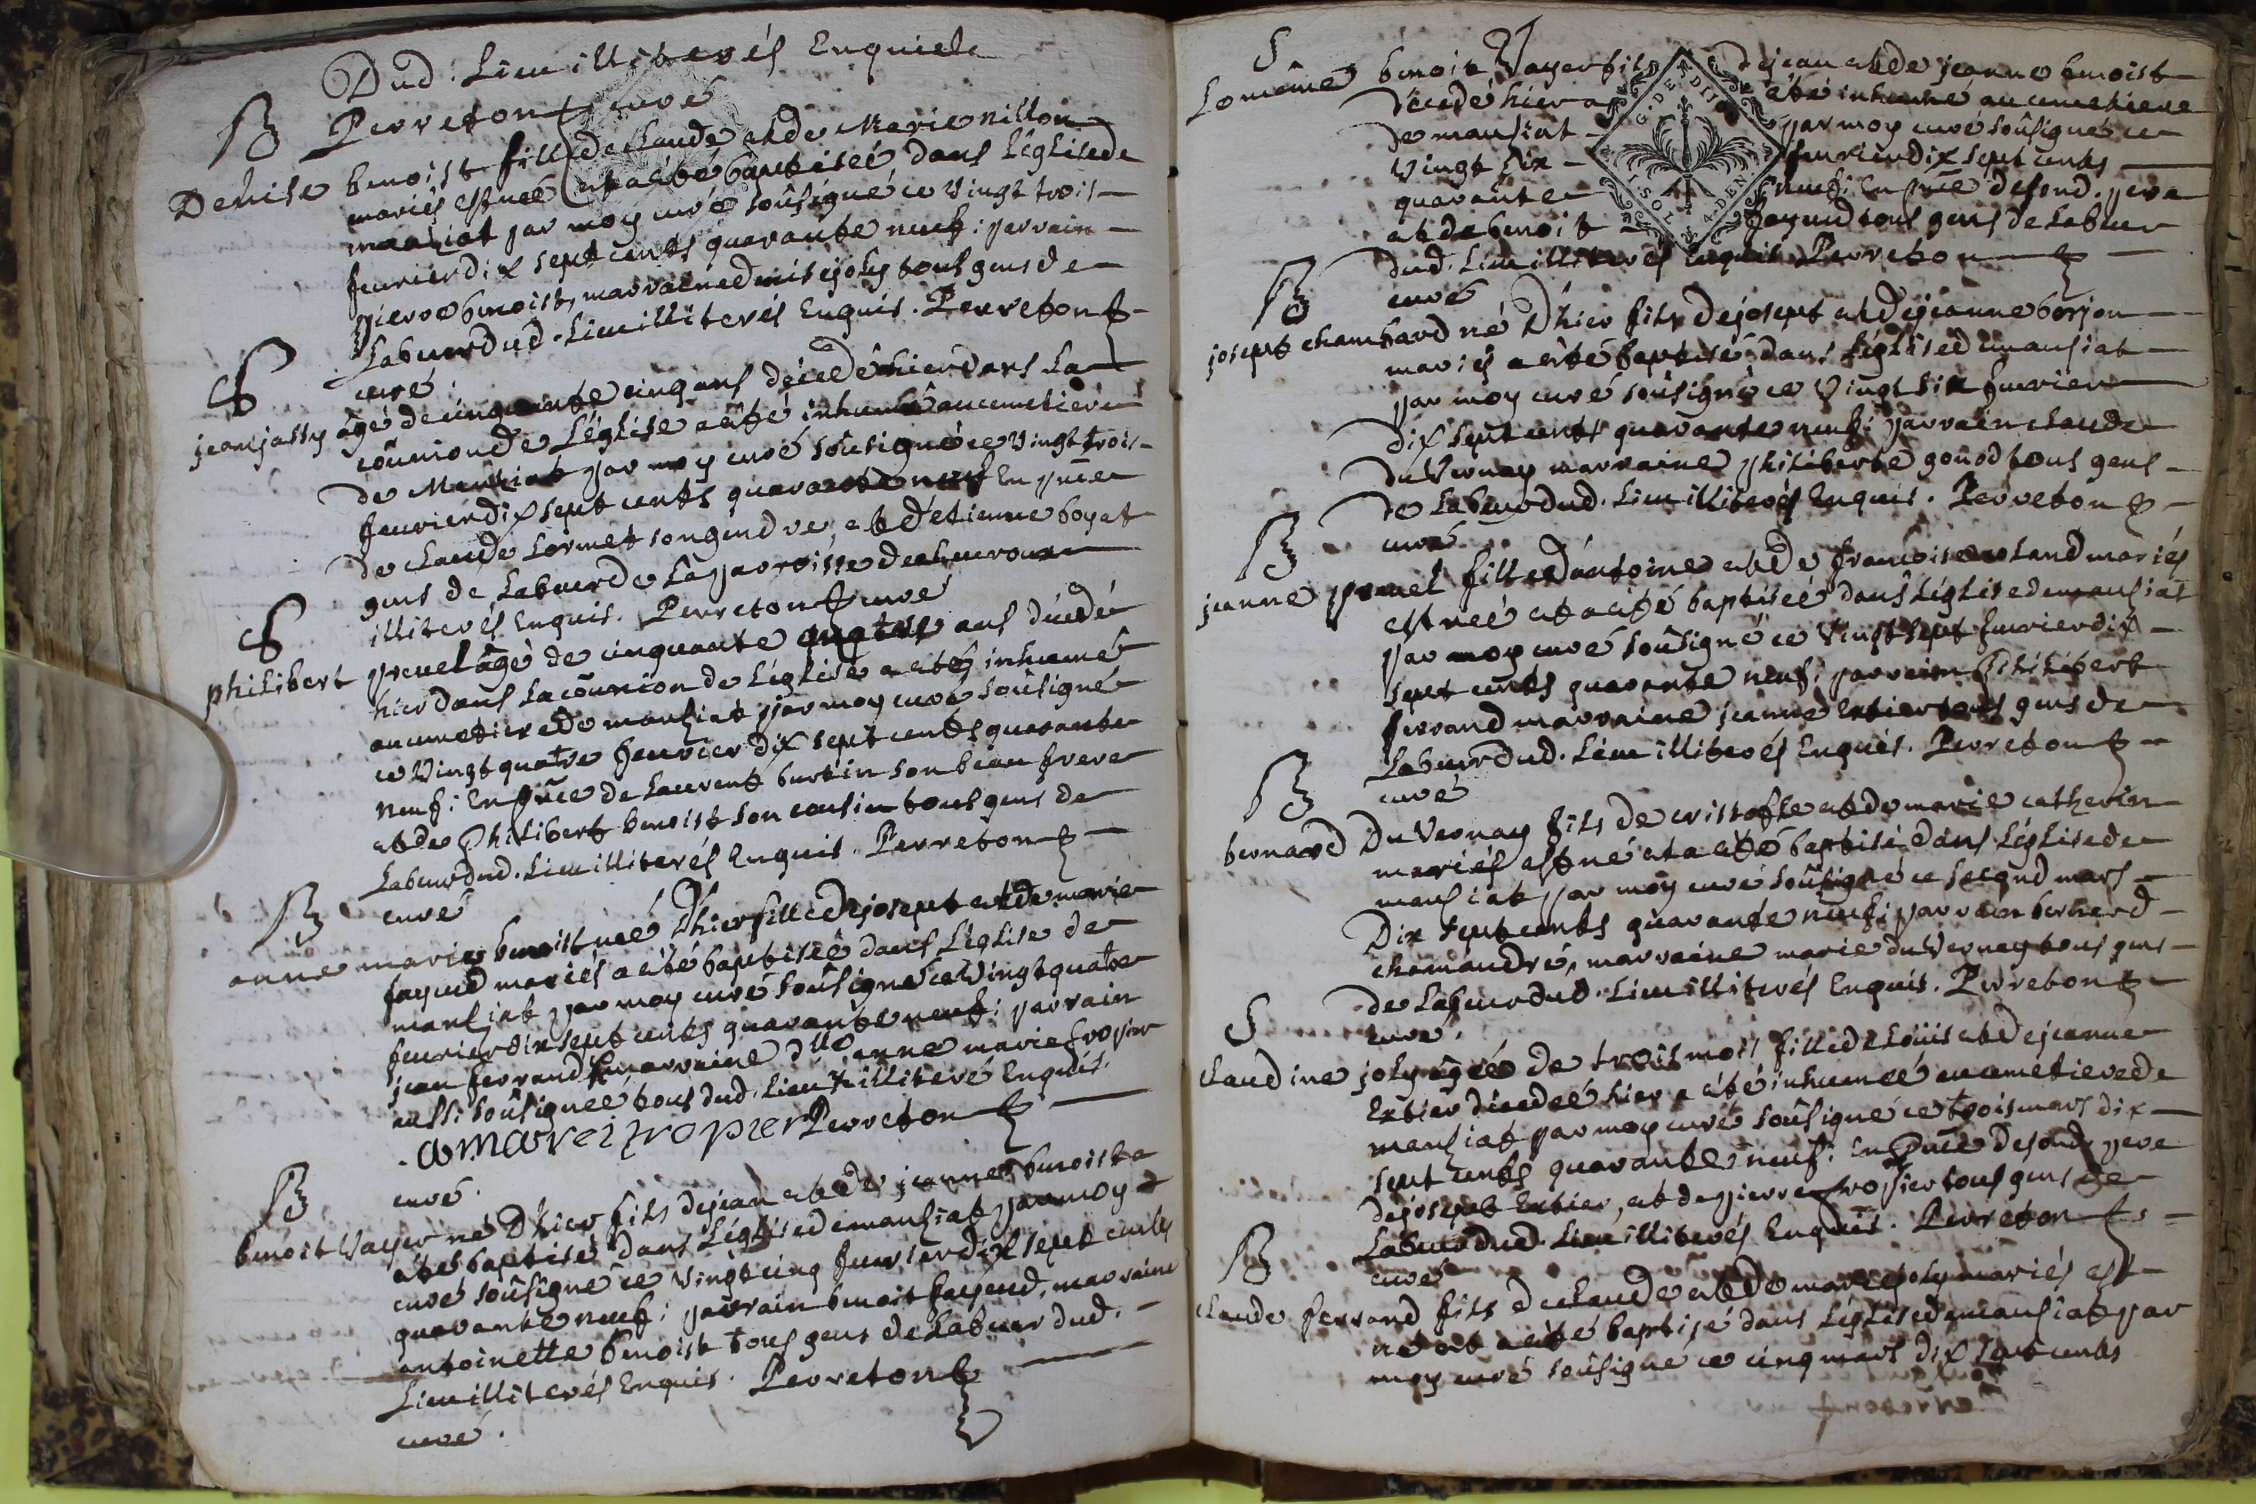 Dud. Lieu illiterés Enquiels
B Perreton curé
Denise benoist fille de claude et de Marie nillon
mariés est neé et a été baptiseé dans L'église de
manziat par moy curé soûsigné ce vingt trois
fevrier dix sept cents quarante neuf: parrain
pierre benoist, marraine denise joly tous gens de
Labeur dud. Lieu illiterés Enquis. Perreton
curé
S
jean jasty âgé de cinquante cinq ans décedé hier dans La
coûnion de L'église a été inhumé au cemetiere
de Manziat par moy curé soûsigné ce vingt trois
fevrier dix sept cents quarante neuf En pnce
de claude Lormet son gendre, et d'etienne boyat
gens de Labeur de La parroisse de chevroux
illiterés Enquis. Perreton curé
S
philibert prevel âgé de cinquante quatre ans décedé
hier dans La coûnion de L'église a été inhumé
au cemetiere de manziat par moy curé soûsigné
ce vingt quatre fevrier dix sept cents quarante
neuf: En pnce de Laurent burtin son beau frere
et de Philibert benoist son cousin tous gens de
Labeur dud. Lieu illiterés Enquis. Perreton
curé
B
anne marie benoist neé d'hier fille de josept et de marie
fayend mariés a été baptiseé dans L'église de
manziat par moy curé soûsigné ce vingt quatre
fevrier dix sept cents quarante neuf: parrain
jean ferrand marraine dlle anne marie tropier
aussi soûsigneé tous dud. Lieu illiteré Enquis.
a marei tropier Perreton
curé.
B
benoit Vayer né d'hier fils de jean et de jeanne benoist a
étes baptisé dans L'église de manziat par moy
curé soûsigné ce vingt cinq fevrier dix sept cents
quarante neuf: parrain benoit fayend, marraine
antoinette benoist tous gens de Labeur dud.
Lieu illiterés Enquis. Perreton
curé.
S
Le même benoit Vayer fils de jean et de jeanne benoist
décedé hier a été inhumé au cemetiere
de manziat par moy curé soûsigné ce
vingt six fevrier dix sept cents
quarante neuf: En pnce desond. pere
et de benoit fayend tous gens de Labeur
dud. Lieu illiterés Enquis Perreton
curé
G. DE DIJ
1 SOL 4 DEN
B
josept chambard né d'hier fils de josept et de jeanne borjon
mariés a été baptisé dans L'église de manziat
par moy curé soûsigné ce vingt six fevrier
dix sept cents quarante neuf: parrain claude
duvernay marraine philiberte gonod tous gens
de Labeur dud. Lieu illiterés Enquis. Perreton
curé
B
jeanne prevel fille d'antoine et de francoise roland mariés
est neé et a été baptiseé dans L'église de manziat
par moy curé soûsigné ce vingt sept fevrier dix
sept cents quarante neuf: parrain Philibert
ferrand marraine jeanne Extier tous gens de
Labeur dud. Lieu illiterés Enquis. Perreton
curé
B
bernard Du Vernay fils de cristofle et de marie catherin
mariés est né et a été baptisé dans L'église de
manziat par moy curé soûsigné ce second mars
Dix sept cents quarante neuf: parrain bernard
chamandré, marraine marie du Vernay tous gens
de Labeur dud. Lieu illiterés Enquis. Perreton
curé.
S
claudine joly âgeé de trois mois fille de Loüis et de jeanne
Extier décedeé hier a été inhumeé au cemetiere de
manziat par moy curé soûsigné ce trois mars dix
sept cents quarante neuf: En pnce desond. pere
de josept Extier, et de pierre tropier tous gens de
Labeur dud. Lieu illiterés Enquis. Perreton
curé
B
claude ferrand fils de claude et de marie joly mariés est
né et a été baptisé dans L'église de manziat par
moy curé soûsigné ce cinq mars dix sept cents